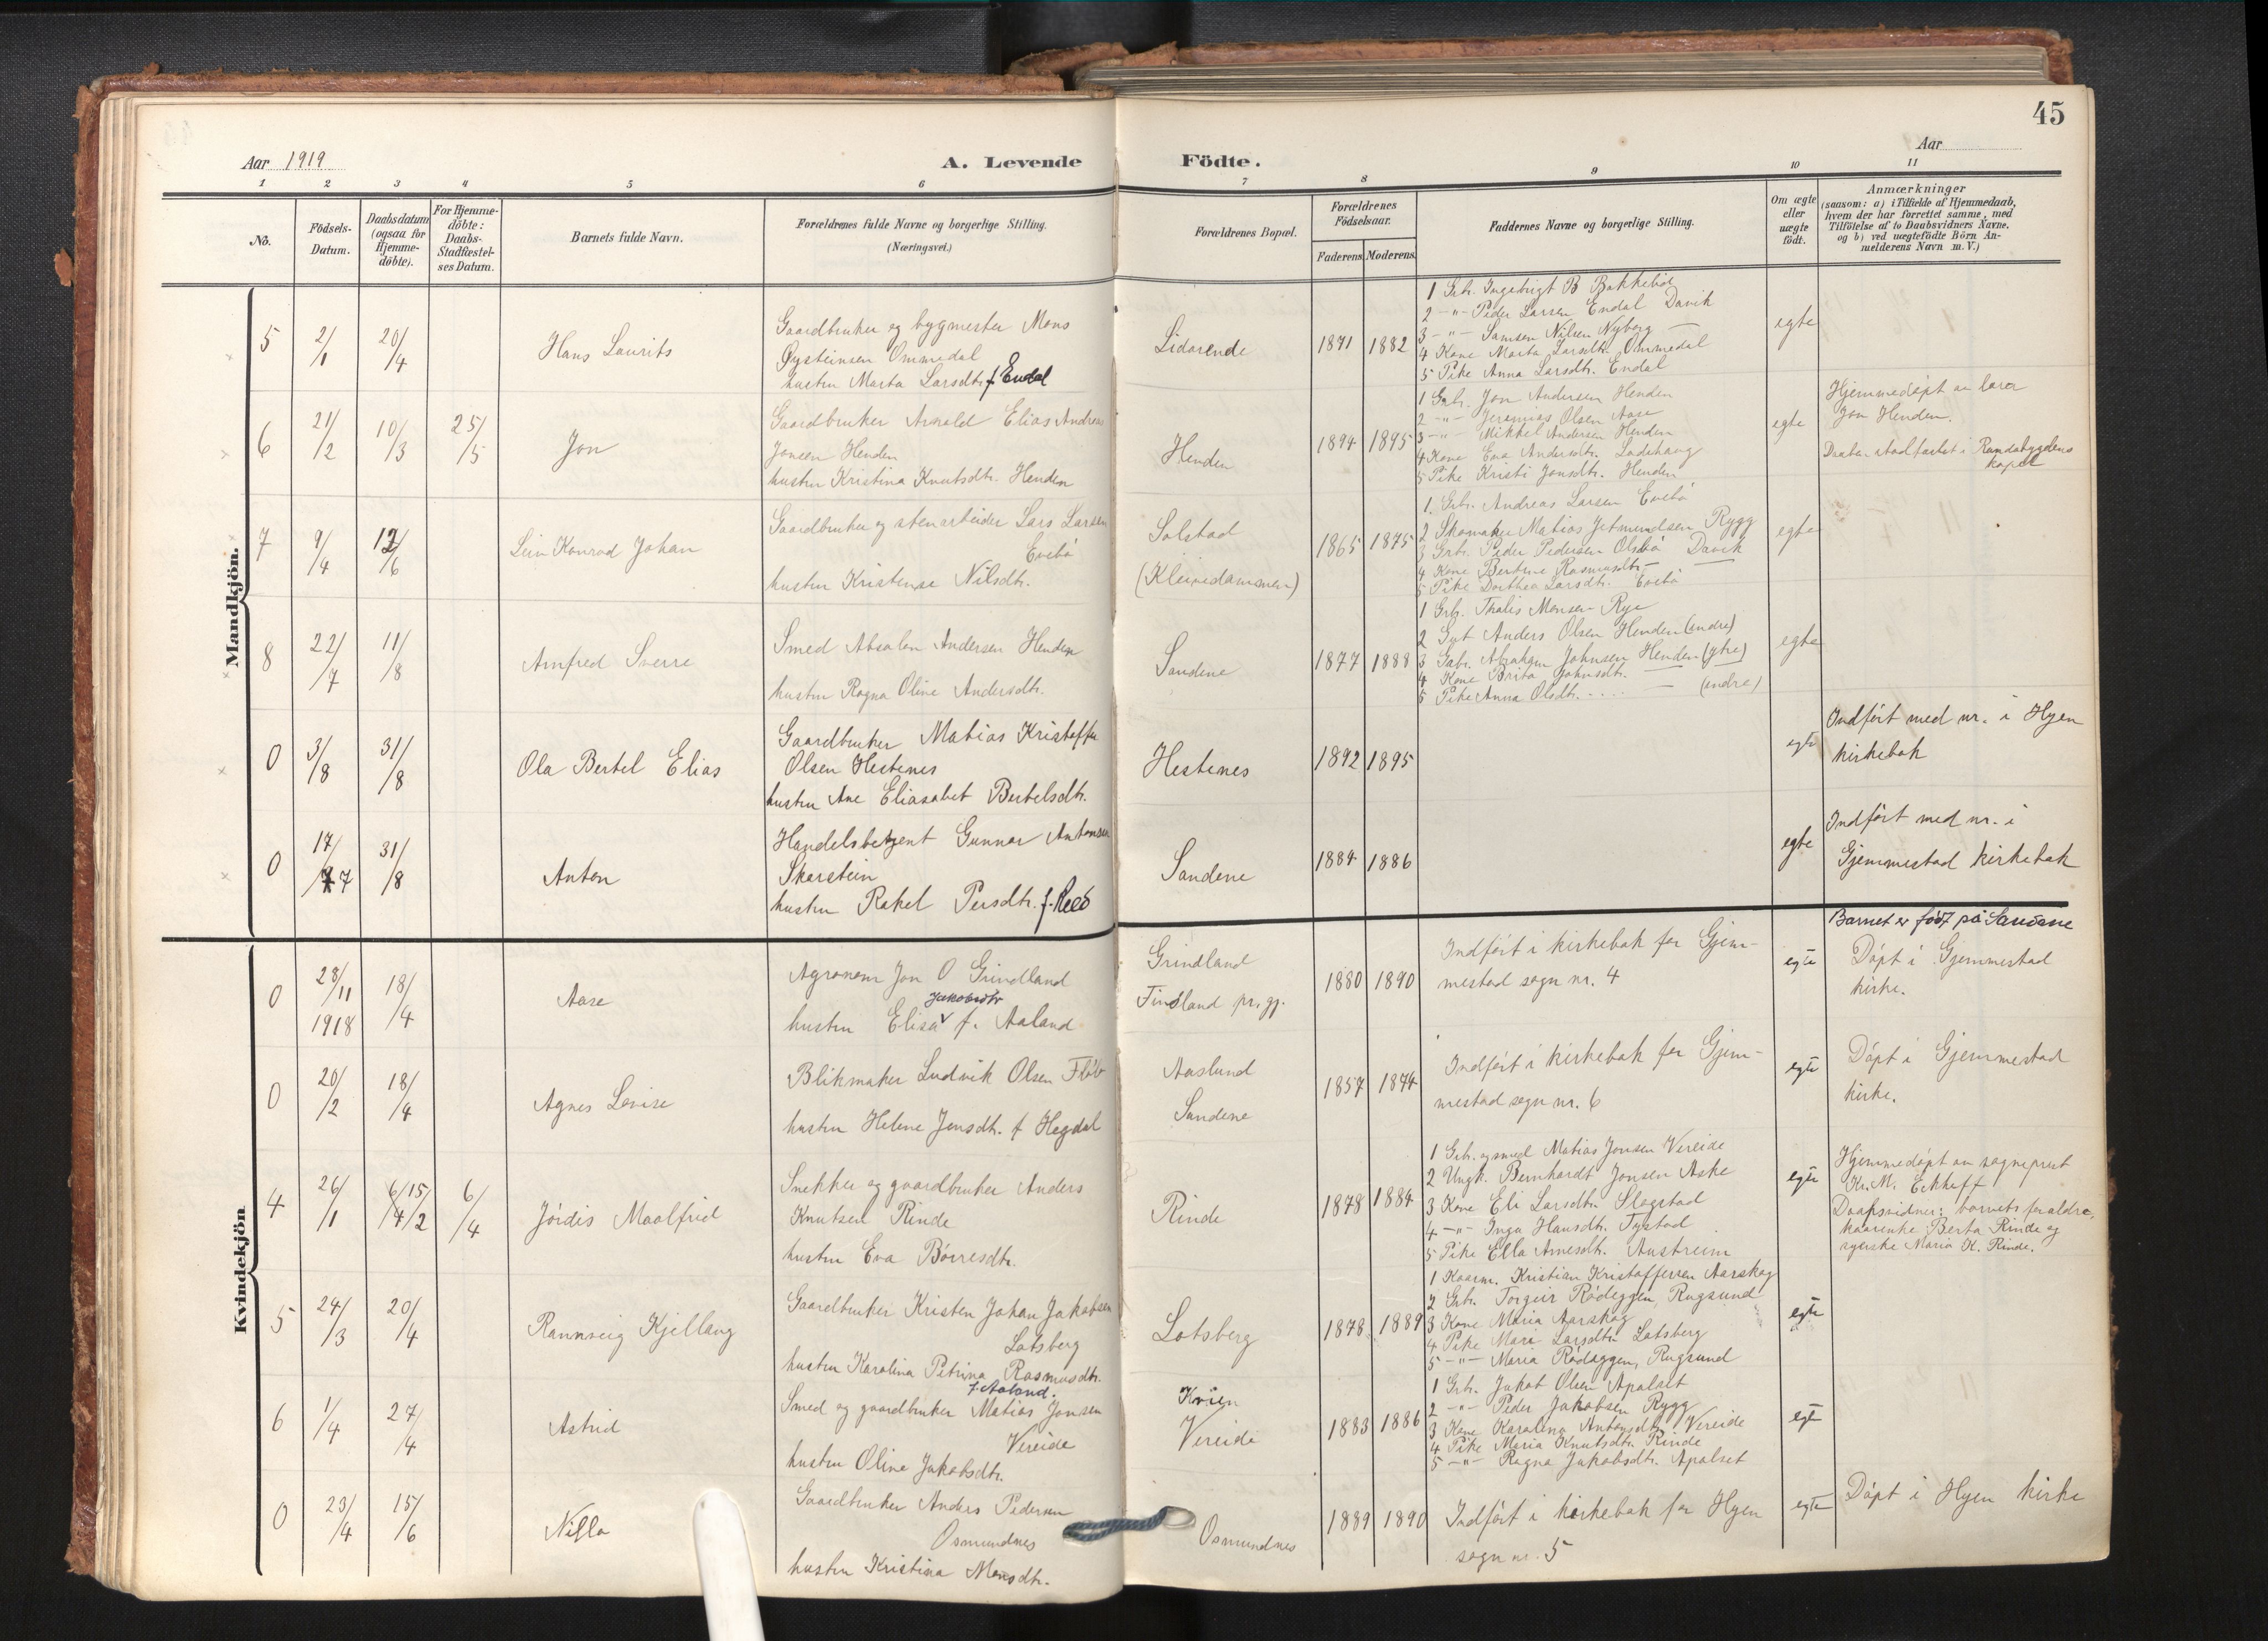 45
Aar 1919
A. Levende
Födte.
Aar
1 2 3 4 5 6 7 8 9 10 11
No.
Födsels-
Datum.
Daabsdatum
(ogsaa for
Hjemme-
döbte).
For Hjemme-
döbte:
Daabs-
Stadfæstel-
ses Datum.
Barnets fulde Navn.
Forældrenes fulde Navne og borgerlige Stilling.
(Næringsvei.)
Forældrenes Bopæl.
Forældrenes
Födselsaar.
Faderens. Moderens.
Faddernes Navne og borgerlige Stilling.
Om ægte
eller
uægte
födt.
Anmærkninger
(saasom: a) i Tilfælde af Hjemmedaab,
hvem der har forrettet samme, med
Tilföielse af to Daabsvidners Navne,
og b) ved uægtefödte Börn An-
melderens Navn m. V.)
Mandkjön.
5
2/1
20/4
Hans Laurits
Gaardbruker og bygmester Mons
Øysteinsen Ommedal
hustru Marta Larsdtr. f. Endal
Lidarende
1871 1882
1 Grb. Ingebrigt B Bakkebö
2 -"- Peder Larsen Endal Davik
3 -"- Samson Nilsen Nyborg —
4 Kone Marta Larsdtr. Ommedal
5 Pike Anna Larsdtr. Endal
egte
6
21/2
10/3
25/5
Jon
Gaardbruker Arvald Elias Andreas
Jonsen Henden
hustru Kristina Knutsdtr. Henden
Henden
1894 1895
1 Grb. Jon Andersen Henden
2 -"- Jeremias Olsen Aase
3 -"- Mikkel Andersen Henden
4 Kone Eva Andersdtr. Ladehaug
5 Pike Kristi Jonsdtr. Henden
egte
Hjemmedöpt av lærer
Jon Henden.
Daaben stadfæstet i Randabygdens
kapel
7
9/4
12/6
Leiv Konrad Johan
Gaardbruker og stenarbeider Lars Larsen
Evebö
hustru Kristense Nilsdtr.
Solstad
(Kleivedammen)
1865 1875
1. Grb. Andreas Larsen Evebö
2 Skomaker Matias Jetmundsen Rygg
3 Grb. Peder Pedersen Olsbö Davik
4 Kone Bertine Rasmusdtr. —
5 Pike Dorthea Larsdtr. Evebö
egte
8
22/7
11/8
Arnfred Sverre
Smed Absalon Andersen Henden
hustru Ragna Oline Andersdtr.
Sandene
1877 1888
1 Grb. Thalis Monsen Rye
2 Grb Anders Olsen Henden (indre)
3 Gabr. Abraham Johnsen Henden (ytre)
4 Kone Brita Johnsdtr. —
5 Pike Anna Olsdtr. — (indre)
egte
0
3/8
31/8
Ola Bertel Elias
Gaardbruker Matias Kristoffer
Olsen Hestenes
hustru Ane Eliasabet Bertelsdtr.
Hestenes
1892 1895
egte
Indfört med nr. i Hyen
kirkebok
0
17/7
31/8
Anton
Handelsbetjent Gunnar Antonsen
Skarstein
hustru Rakel Persdtr. f. Reed
Sandene
1884 1886
egte
Indfört med nr. i
Gjemmestad kirkebok
Barnet er född på Sandane
Kvindekjön
0
28/11
1918
18/4
Aase
Agronom Jon O Grindland
Jakobsdtr
hustru Elisa f. Aaland
Grindland
Finsland pr.gj.
1880 1890
Indfört i kirkebok for Gjem-
mestad sogn nr. 4
egte
Döpt i Gjemmestad
kirke.
0
20/2
18/4
Agnes Levise
Blikmaker Ludvik Olsen Flöv
hustru Helene Jensdtr. f Hegdal
Aaslund
Sandene
1857 1874
Indfört i kirkebok for Gjem-
mestad sogn nr. 6
egte
Döpt i Gjemmestad
kirke.
4
26/1
15/2
6/4
Jördis Maalfrid
Snekker og gaardbruker Anders
Knutsen Rinde
hustru Eva Börresdtr.
Rinde
1878 1884
1 Grb. og smed Matias Jonsen Vereide
2 Ungk. Bernhardt Jonsen Aske
3 Kone Eli Larsdtr. Slagstad
4 -"- Inga Hansdtr. Tystad
5 Pike Ella Arnesdtr. Austreim
egte
Hjemmedöpt av sogneprest
Kr. M. Eckhoff
Daapsvidner: barnets foraldre,
kaarenke Berta Rinde og
syerske Maria K. Rinde.
5
24/3
20/4
Rannveig Kjellaug
Gaardbruker Kristen Johan Jakobsen
Lotsberg
hustru Karolina Petrina Rasmusdtr.
f. Aaland.
Lotsberg
1878 1889
1 Kaarm. Kristian Kristoffersen Aarskog
2 Grb. Torgeir Rödeggen, Rugsund
3 Kone Maria Aarskog
4 Pike Mari Larsdtr. Lotsberg
5 -"- Maria Rödeggen, Rugsund
egte
6
1/4
27/4
Astrid
Smed og gaardbruker Matias Jonsen
Vereide
hustru Oline Jakobsdtr.
Kvien
Vereide
1883 1886
1 Grb. Jakob Olsen Apalset
2 -"- Peder Jakobsen Rygg
3 Kone Karolina Antonsdtr. Vereide
4 Pike Maria Knutsdtr. Rinde
5 -"- Ragna Jakobsdtr. Apalset
egte
0
23/4
15/6
Nilla
Gaardbruker Anders Pedersen
Osmundnes
hustru Kristina Monsdtr.
Osmundnes
1889 1890
Indfört i kirkebok for Hyen
sogn nr. 5
egte
Döpt i Hyen kirke